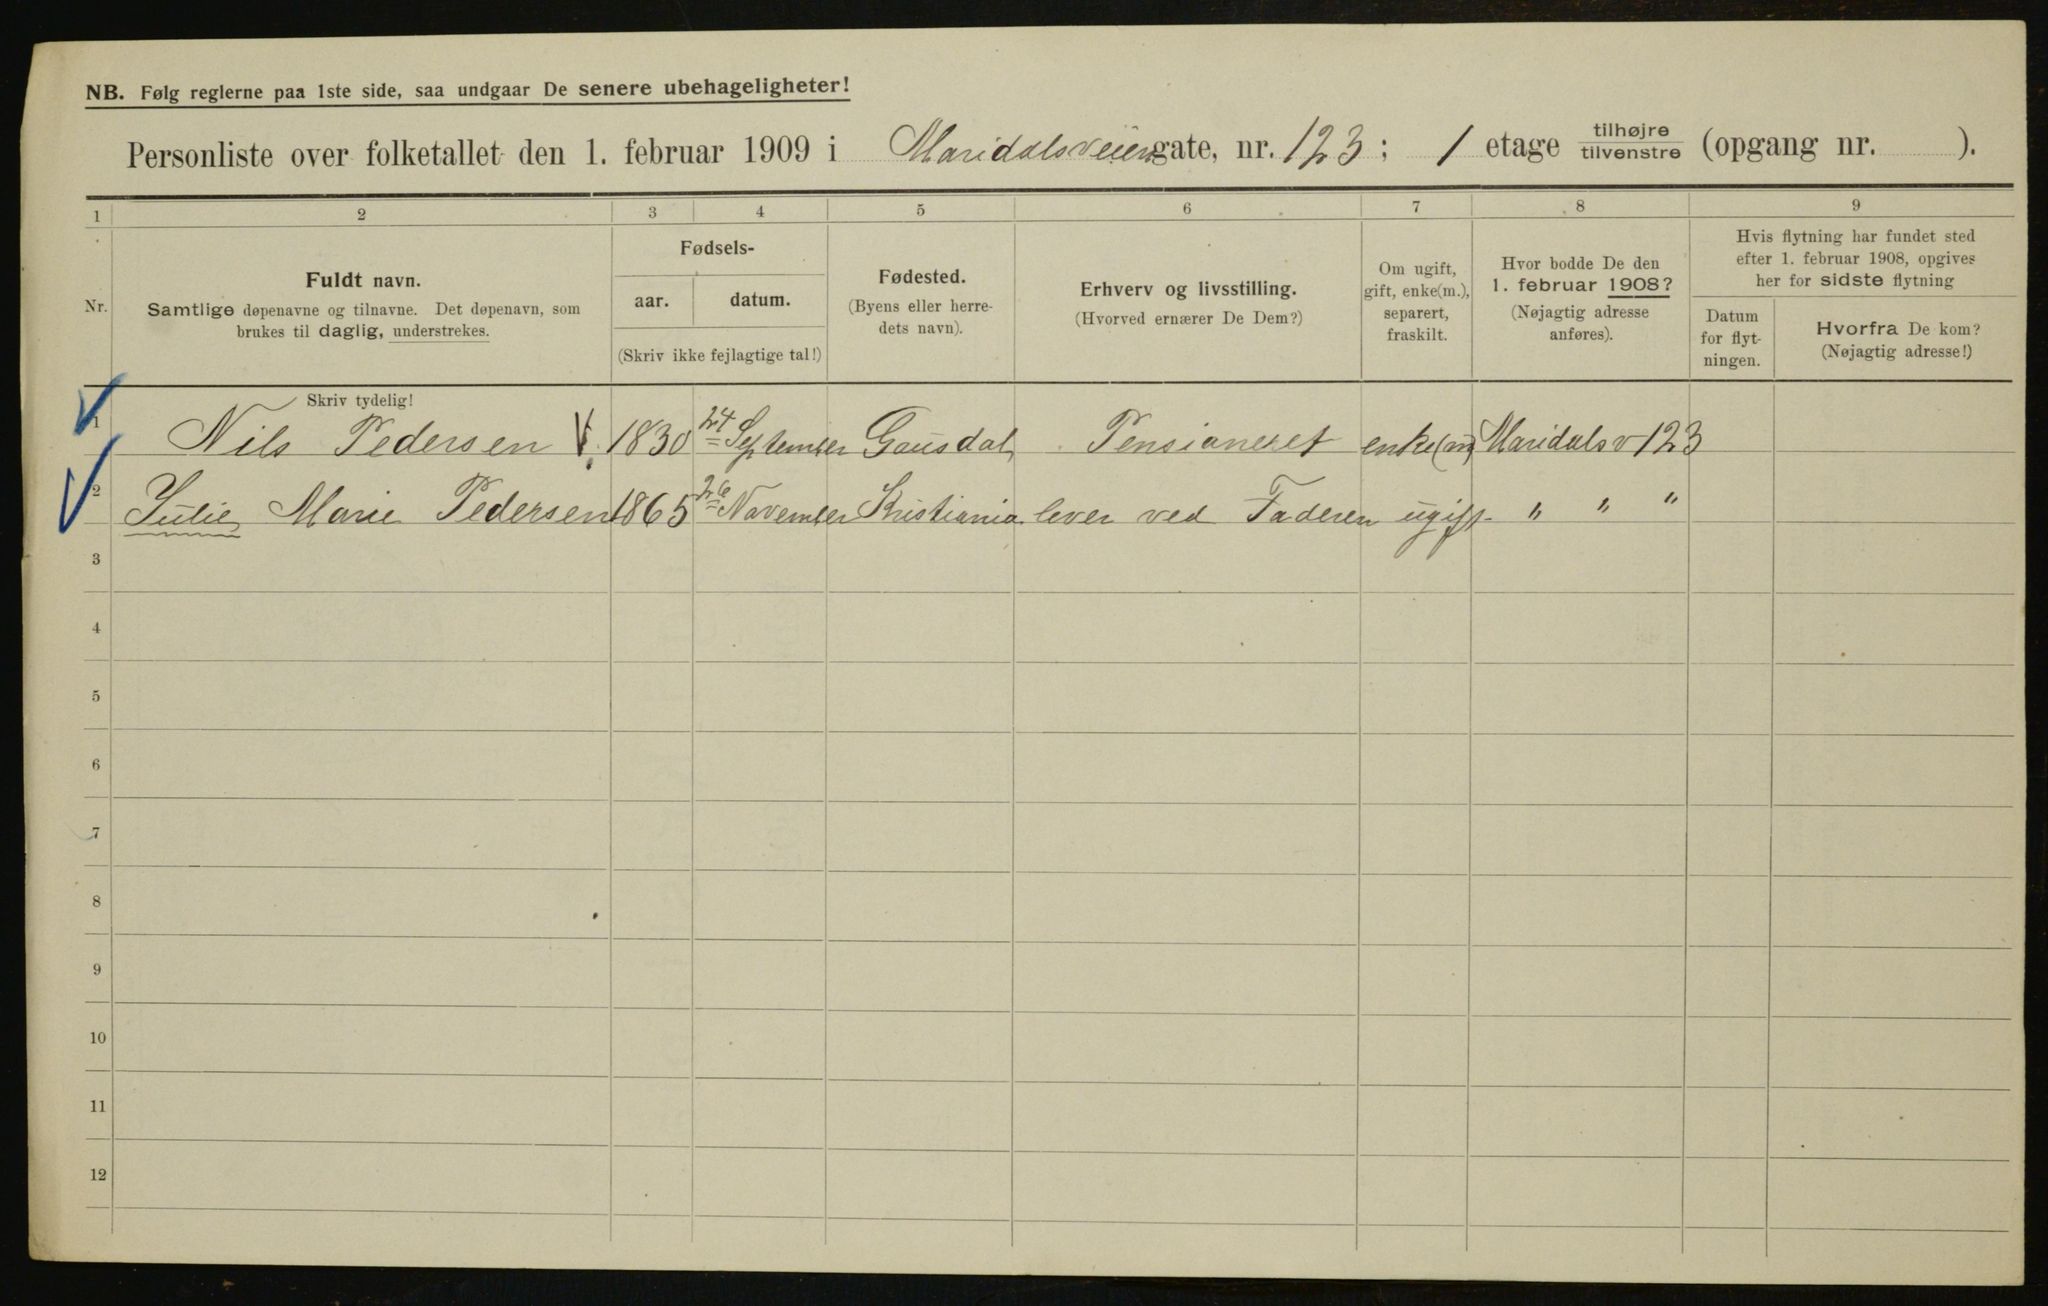 NB. Følg reglerne paa 1ste side, saa undgaar De senere ubehageligheter!
Personliste over folketallet den 1. februar 1909 i Maridalsveien gate, nr. 123; 1 etage tilhøjre tilvenstre (opgang nr. ).
1 2 3 4 5 6 7 8 9
Nr.
Fuldt navn.
Samtlige døpenavne og tilnavne. Det døpenavn, som
brukes til daglig, understrekes.
Fødsels-
aar. datum.
(Skriv ikke fejlagtige tal!)
Fødested.
(Byens eller herre-
dets navn).
Erhverv og livsstilling.
(Hvorved ernærer De Dem?)
Om ugift,
gift, enke(m.),
separert,
fraskilt.
Hvor bodde De den
1. februar 1908?
(Nøjagtig adresse
anføres).
Hvis flytning har fundet sted
efter 1. februar 1908, opgives
her for sidste flytning
Datum
for flyt-
ningen.
Hvorfra De kom?
(Nøjagtig adresse!)
Skriv tydelig!
1 Nils Pedersen 1830 24 September Gausdal Pensioneret enke(m) Maridalsv 123
2 Julie Marie Pedersen 1865 26 November Kristiania lever ved Faderen ugift " " "
3
4
5
6
7
8
9
10
11
12